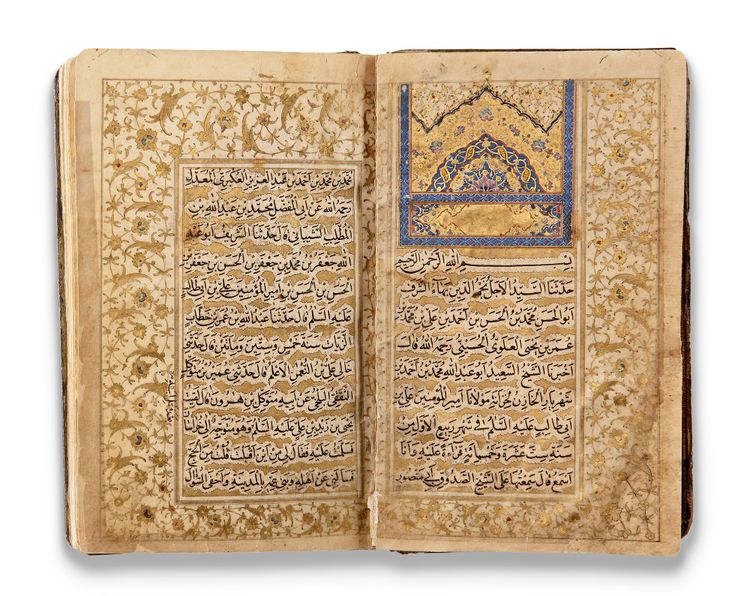 بسم الله الرحمن الرحيم
حدثنا السيد الاجل نجم الدين بهاء الشرف
ابو الحسن محمد بن الحسن بن احمد بن علي بن محمد بن
عمر بن يحيى العلوي الحسيني رحمه الله قال
اخبرنا الشيخ السعيد ابو عبد الله محمد بن احمد بن
شهريار الخازن لخزانة مولانا امير المؤمنين علي بن
ابي طالب عليه السلم في شهر ربيع الاول من
سنة ست عشرة وخمسمائة قراءة عليه وانا
اسمع قال سمعتها على الشيخ الصدوق ابي منصور
محمد بن محمد بن احمد بن عبد العزيز العكبري المعدل
رحمه الله عن ابي المفضل محمد بن عبد الله بن
المطلب الشيباني قال حدثنا الشريف ابو عبد
الله جعفر بن محمد بن جعفر بن الحسن بن جعفر بن
الحسن بن الحسن بن امير المؤمنين علي بن ابي طالب
عليه السلم قال حدثنا عبد الله بن عمر بن خطاب
الزيات سنة خمس وستين ومائتين قال حدثني
خالي علي بن النعمن الاعلم قال حدثني عمير بن متوكل
الثقفي البلخي عن ابيه متوكل بن هرون قال لقيت
يحيى بن زيد بن علي عليه السلم وهو متوجه الى خراسان
فسلمت عليه فقال لي من اين اقبلت قلت من الحج
فسالني عن اهله وبني عمه بالمدينة واحفى السؤال